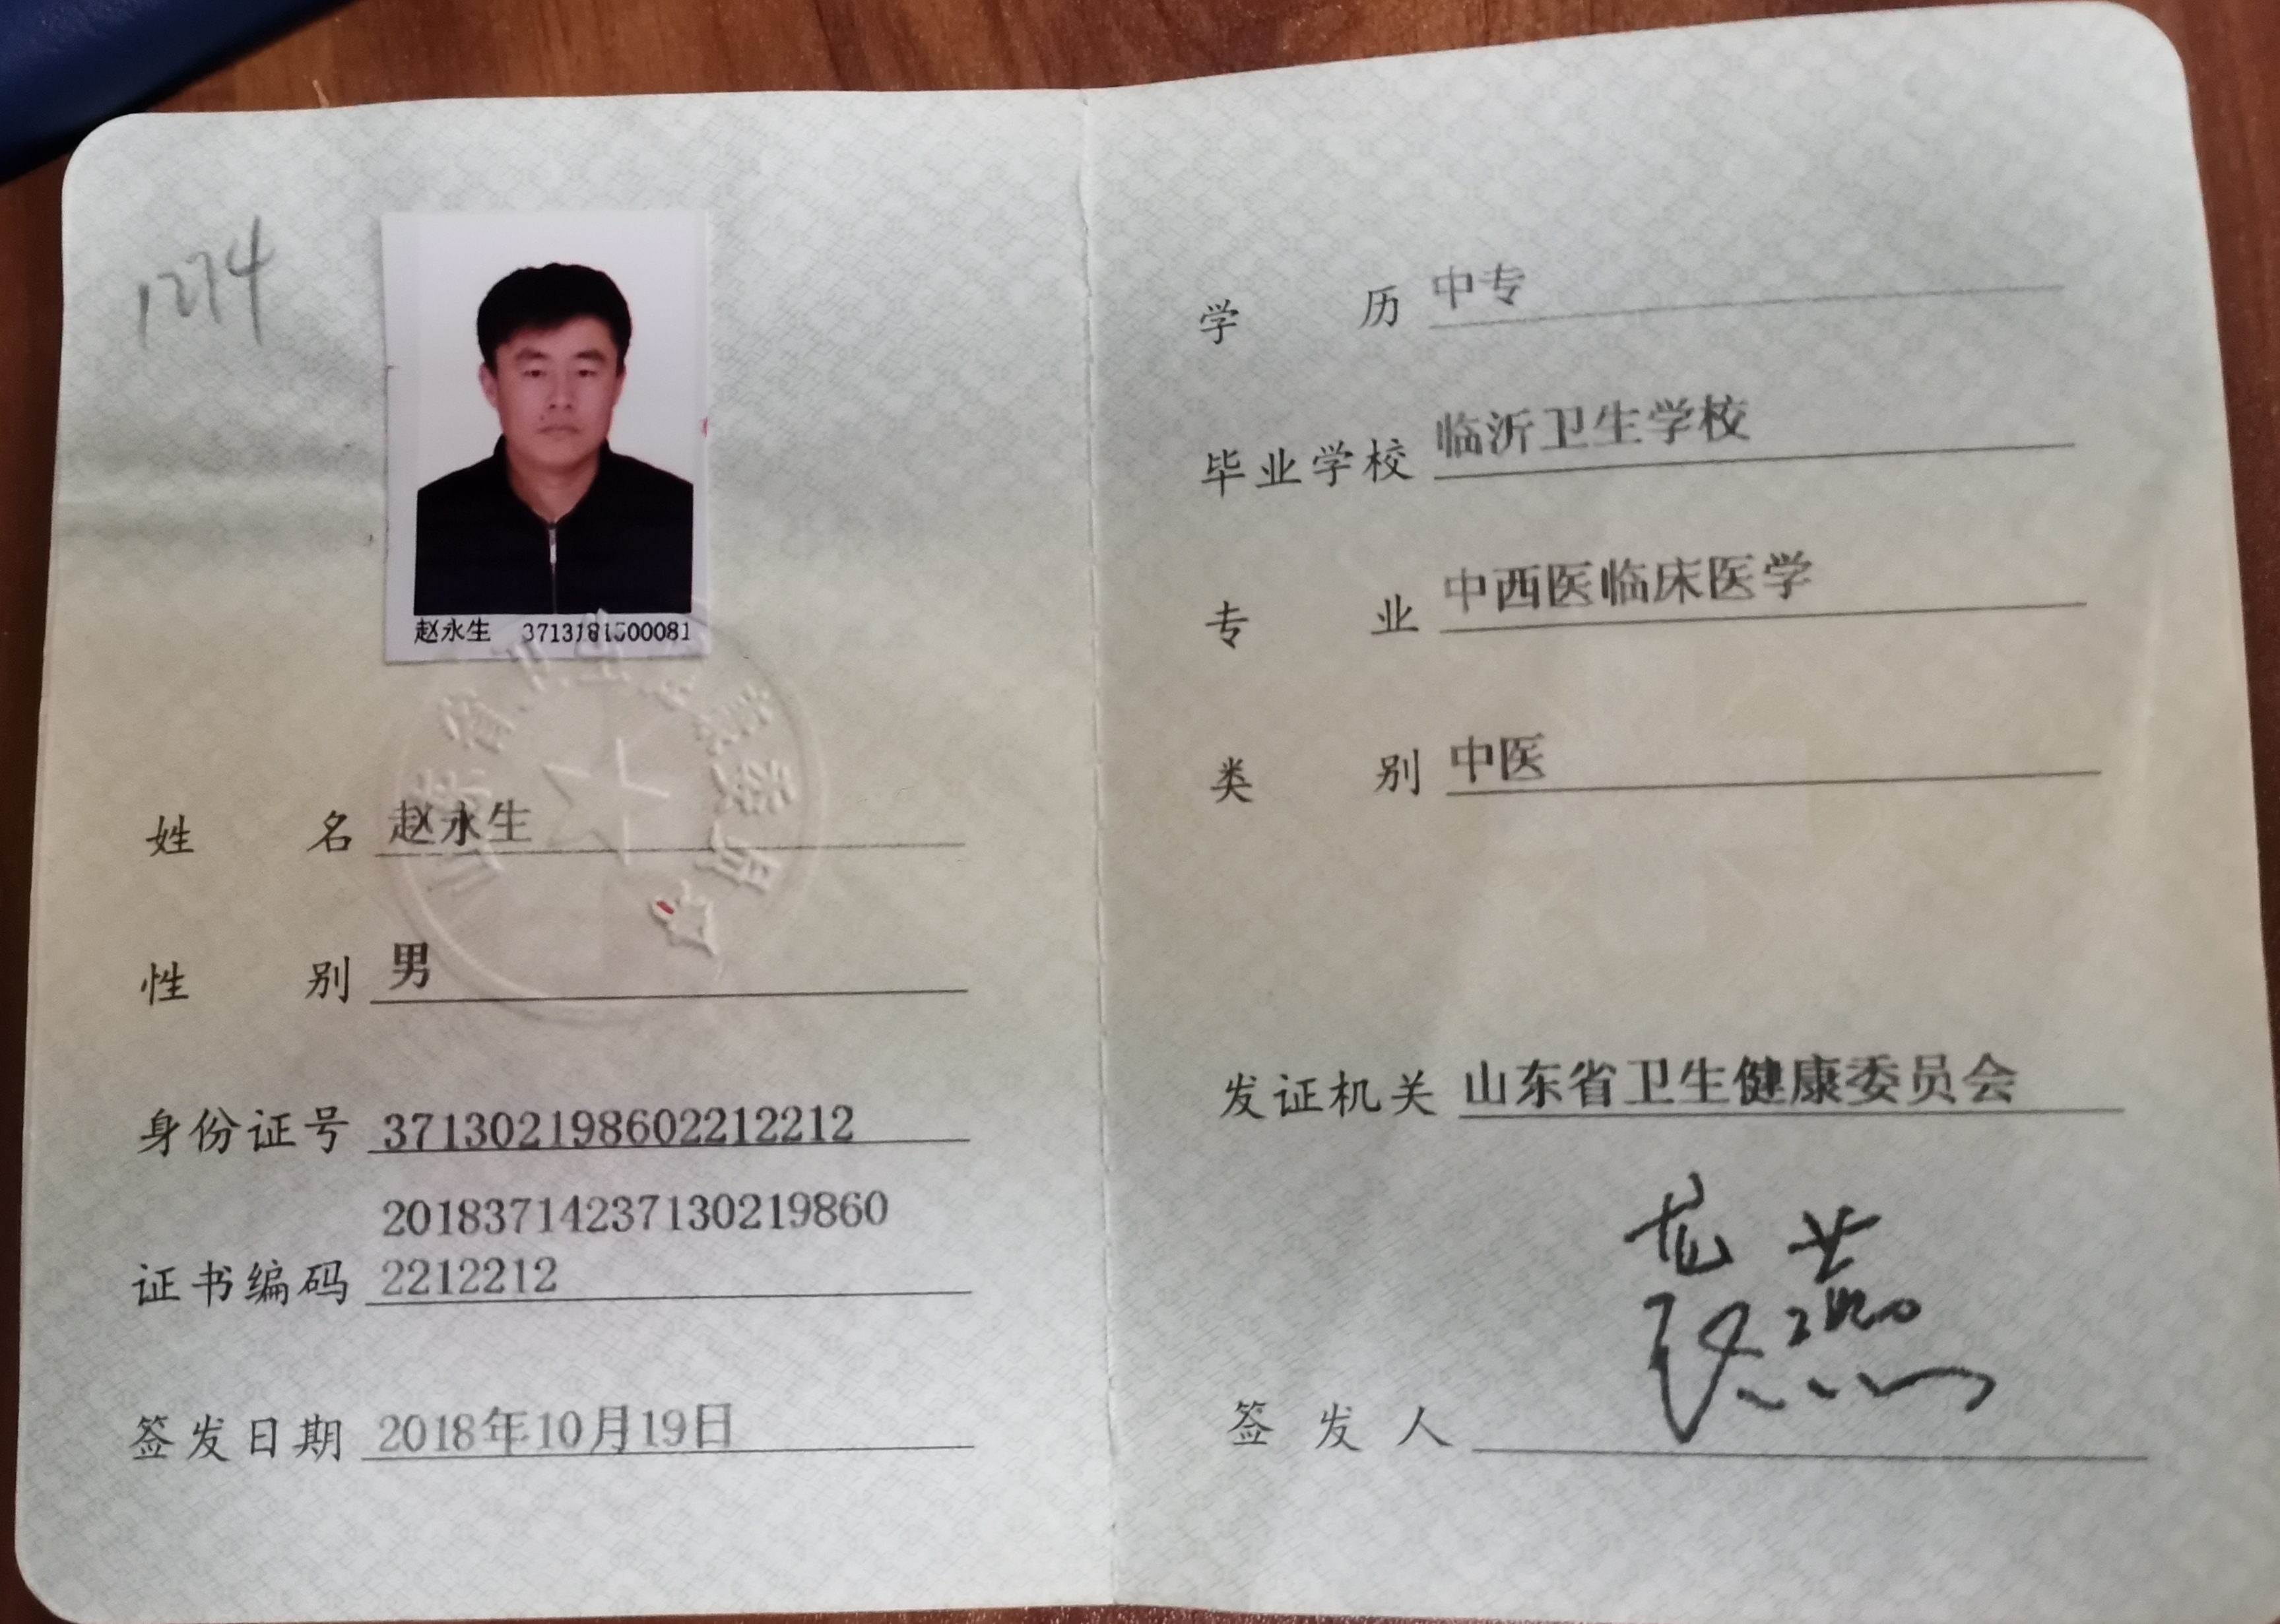 1274
赵永生 3713181500081
山东省卫生健康委员会
姓名 赵永生
性别 男
身份证号 371302198602212212
20183714237130219860
证书编码 2212212
签发日期 2018年10月19日
学历 中专
毕业学校 临沂卫生学校
专业 中西医临床医学
类别 中医
发证机关 山东省卫生健康委员会
签发人